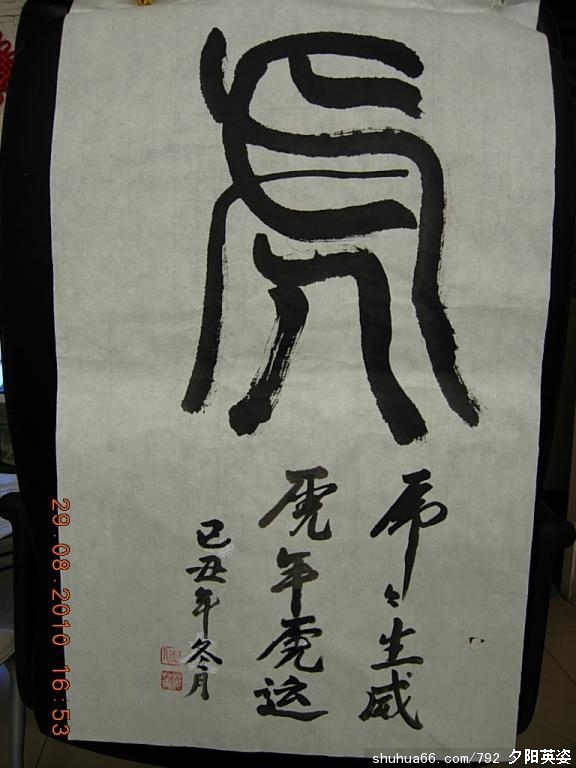 虎
虎々生威
虎年虎运
己丑年冬月
29.08.2010 16:53
shuhua66.com/792 夕阳英姿